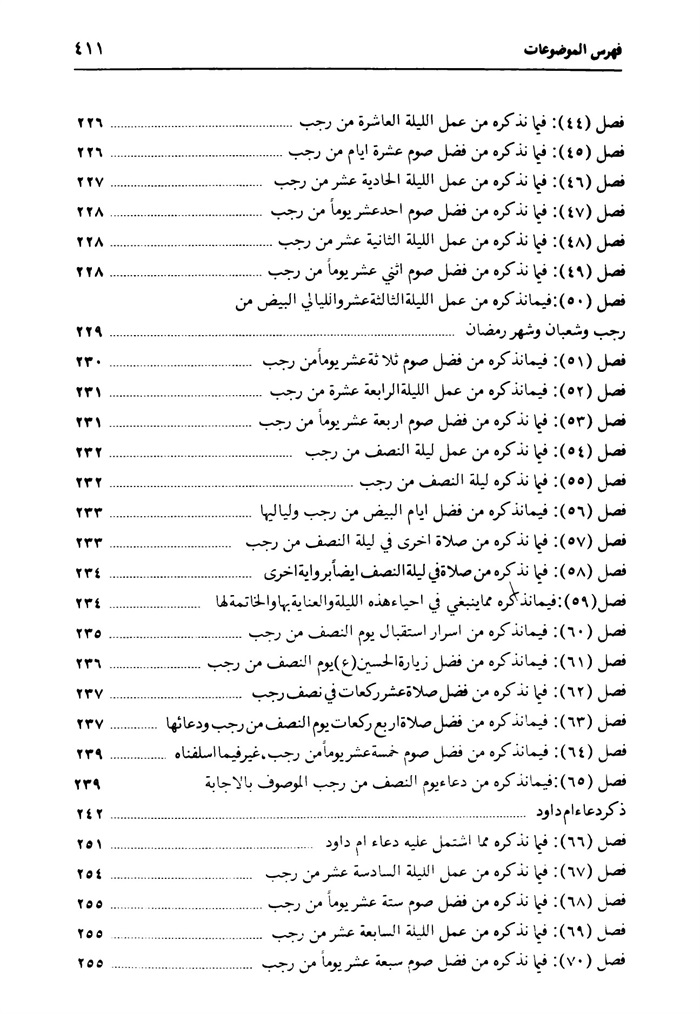 فهرس الموضوعات ٤١١
فصل (٤٤): فيما نذكره من عمل الليلة العاشرة من رجب ٢٢٦
فصل (٤٥): فيما نذكره من فضل صوم عشرة ايام من رجب ٢٢٦
فصل (٤٦): فيما نذكره من عمل الليلة الحادية عشر من رجب ٢٢٧
فصل (٤٧): فيما نذكره من فضل صوم احدعشر يوماً من رجب ٢٢٨
فصل (٤٨): فيما نذكره من عمل الليلة الثانية عشر من رجب ٢٢٨
فصل (٤٩): فيما نذكره من فضل صوم اثني عشر يوماً من رجب ٢٢٨
فصل (٥٠): فيمانذكره من عمل الليلة الثالثة عشر والليالي البيض من
رجب وشعبان وشهر رمضان ٢٢٩
فصل (٥١): فيمانذكره من فضل صوم ثلاثة عشر يوماً من رجب ٢٣٠
فصل (٥٢): فيمانذكره من عمل الليلة الرابعة عشرة من رجب ٢٣١
فصل (٥٣): فيمانذكره من فضل صوم اربعة عشر يوماً من رجب ٢٣١
فصل (٥٤): فيما نذكره من عمل ليلة النصف من رجب ٢٣٢
فصل (٥٥): فيما نذكره ليلة النصف من رجب ٢٣٢
فصل (٥٦): فيمانذكره من فضل ايام البيض من رجب ولياليها ٢٣٣
فصل (٥٧): فيما نذكره من صلاة اخرى في ليلة النصف من رجب ٢٣٣
فصل (٥٨): فيما نذكره من صلاة في ليلة النصف ايضاً برواية اخرى ٢٣٤
فصل (٥٩): فيمانذكره مماينبغي في احياء هذه الليلة والعناية بها والخاتمة لها ٢٣٤
فصل (٦٠): فيمانذكره من اسرار استقبال يوم النصف من رجب ٢٣٥
فصل (٦١): فيمانذكره من فضل زيارة الحسين (ع) يوم النصف من رجب ٢٣٦
فصل (٦٢): فيما نذكره من فضل صلاة عشر ركعات في نصف رجب ٢٣٧
فصل (٦٣): فيمانذكره من فضل صلاة اربع ركعات يوم النصف من رجب ودعائها ٢٣٧
فصل (٦٤): فيمانذكره من فضل صوم خمسة عشر يوماً من رجب، غير فيما اسلفناه ٢٣٩
فصل (٦٥): فيمانذكره من دعاء يوم النصف من رجب الموصوف بالاجابة ٢٣٩
ذكر دعاء ام داود ٢٤٢
فصل (٦٦): فيما نذكره مما اشتمل عليه دعاء ام داود ٢٥١
فصل (٦٧): فيما نذكره من عمل الليلة السادسة عشر من رجب ٢٥٤
فصل (٦٨): فيما نذكره من فضل صوم ستة عشر يوماً من رجب ٢٥٥
فصل (٦٩): فيما نذكره من عمل الليلة السابعة عشر من رجب ٢٥٥
فصل (٧٠): فيما نذكره من فضل صوم سبعة عشر يوماً من رجب ٢٥٥